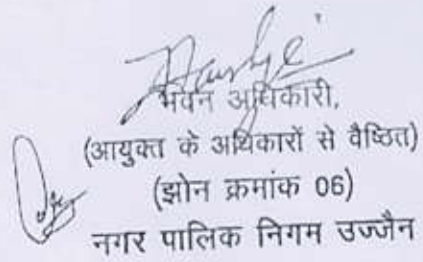 भवन अधिकारी,
(आयुक्त के अधिकारों से वैष्ठित)
(झोन क्रमांक 06)
नगर पालिक निगम उज्जैन